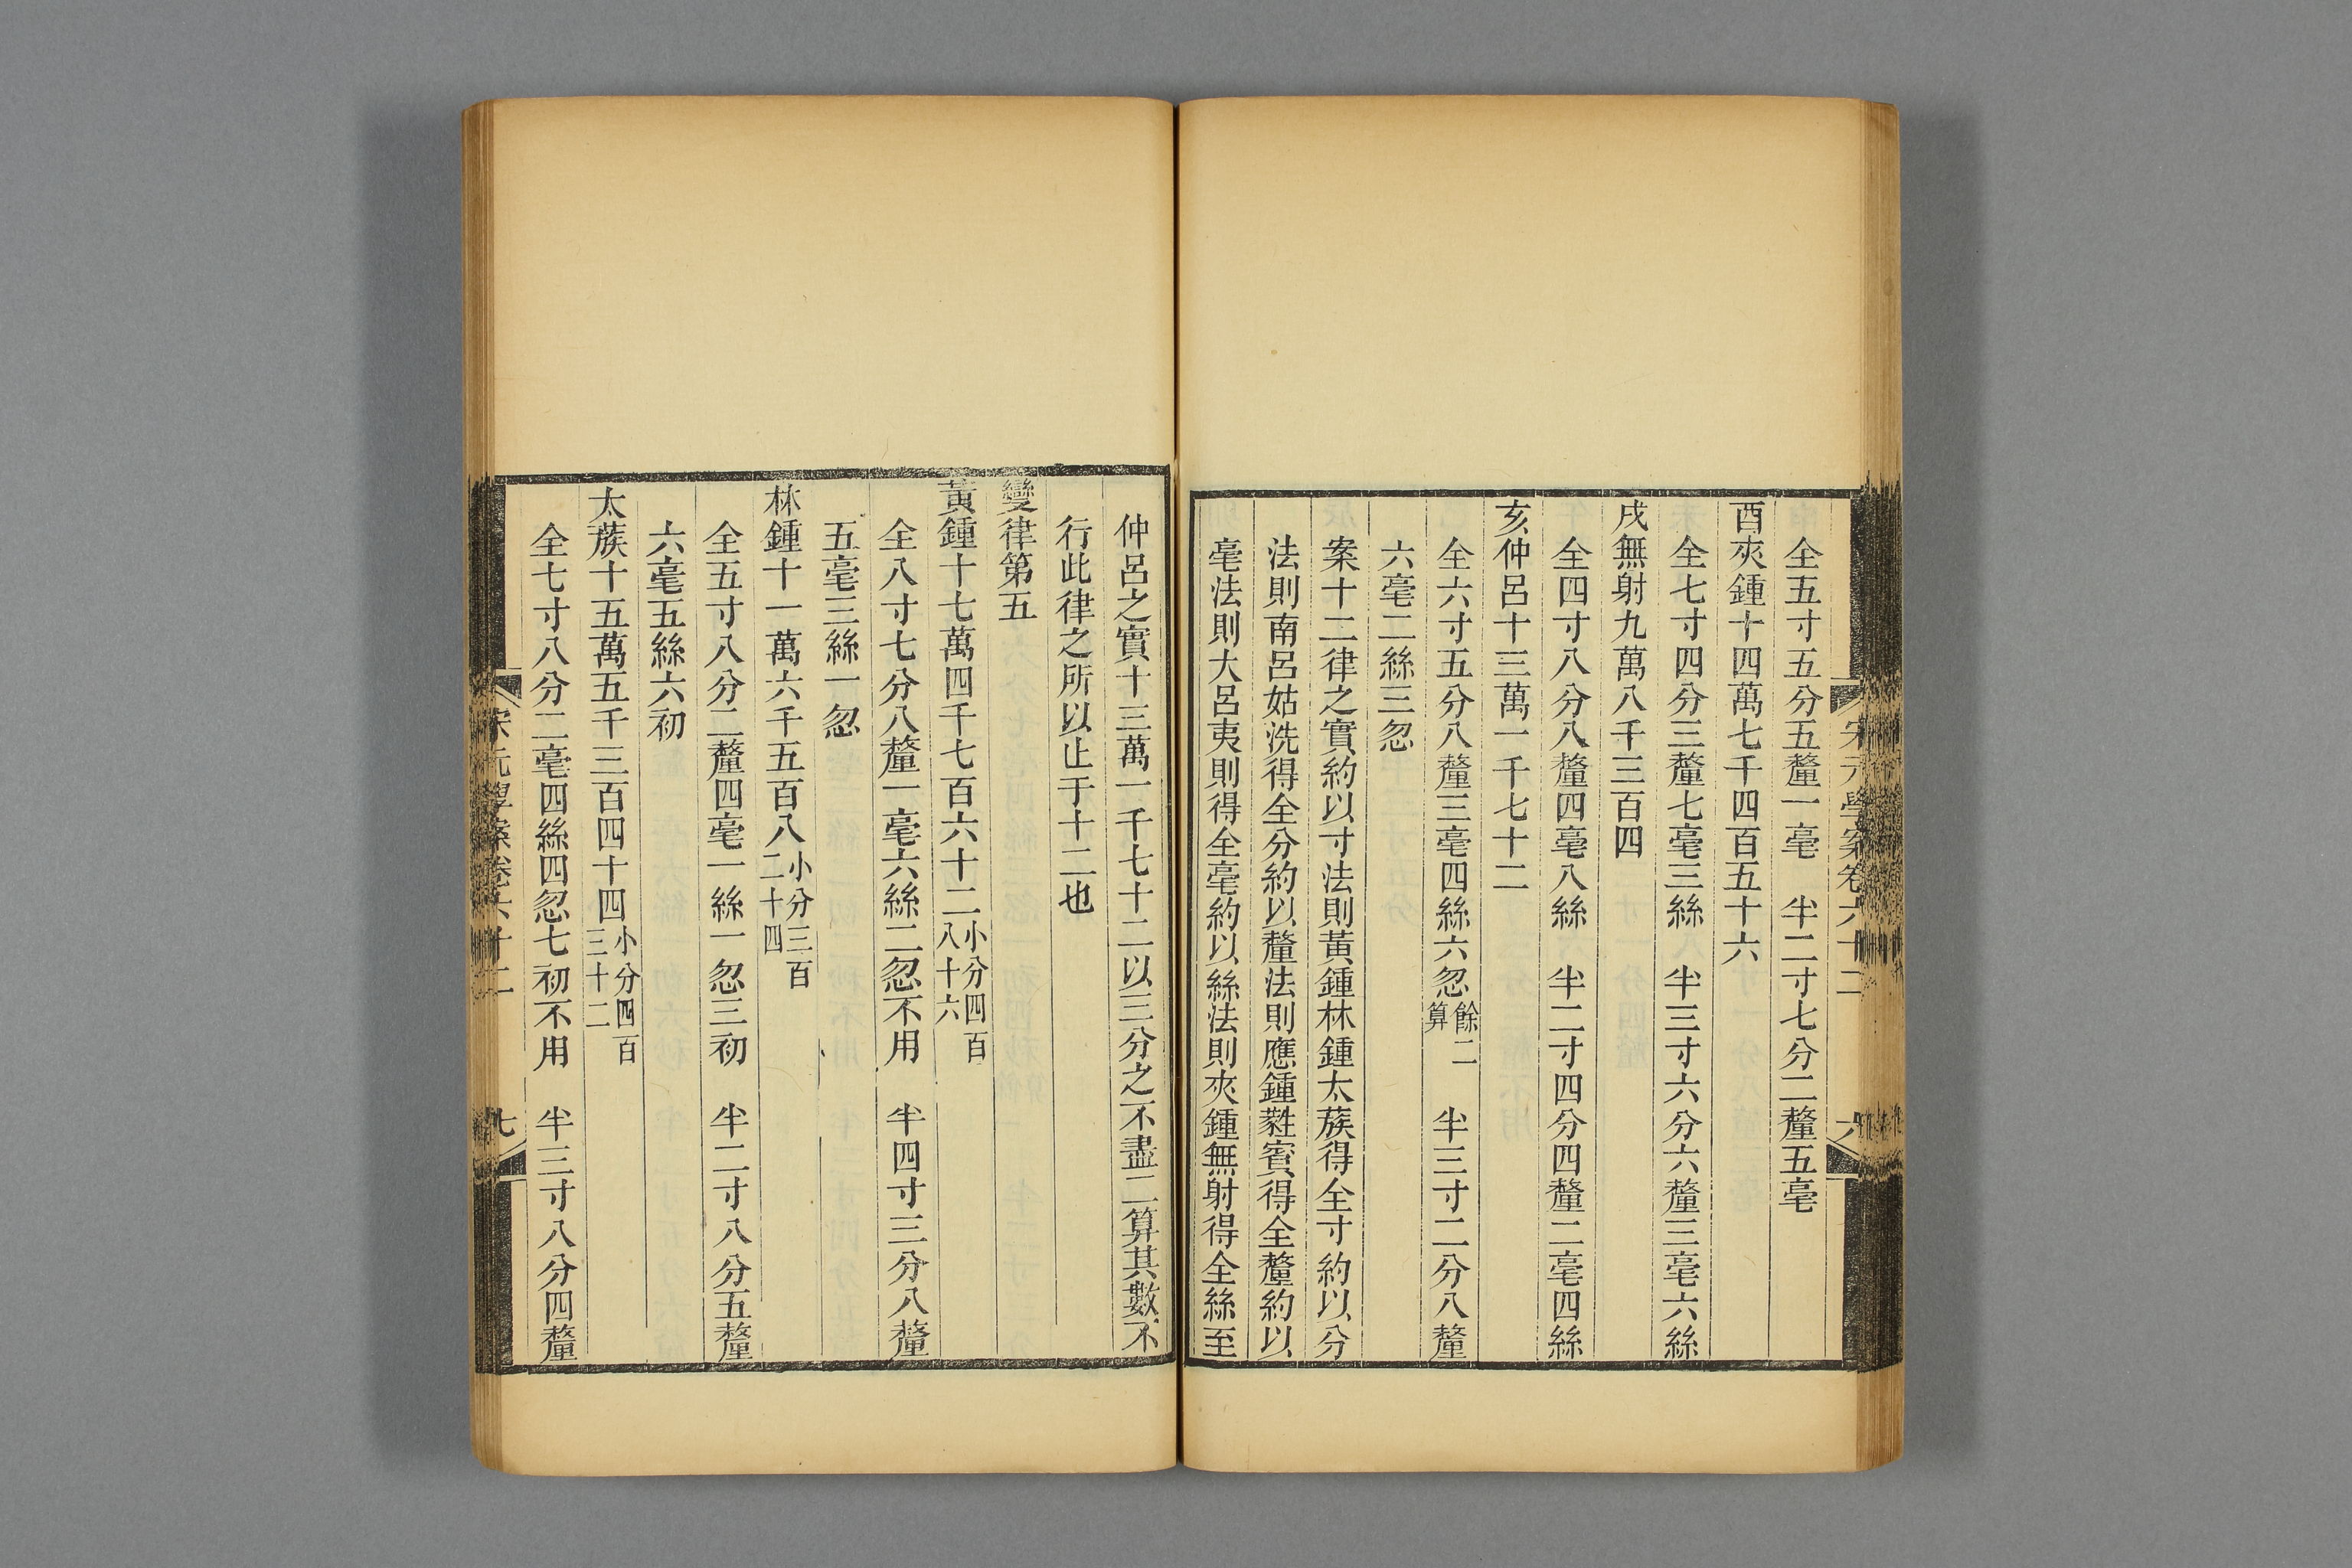 宋元學案卷六十二
六
全五寸五分五釐一毫　半二寸七分二釐五毫
酉夾鍾十四萬七千四百五十六
全七寸四分三釐七毫三絲　半三寸六分六釐三毫六絲
戌無射九萬八千三百四
全四寸八分八釐四毫八絲　半二寸四分四釐二毫四絲
亥仲呂十三萬一千七十二
全六寸五分八釐三毫四絲六忽餘二算　半三寸二分八釐
六毫二絲三忽
案十二律之實約以寸法則黃鍾林鍾太蔟得全寸約以分
法則南呂姑洗得全分約以釐法則應鍾蕤賓得全釐約以
毫法則大呂夷則得全毫約以絲法則夾鍾無射得全絲至
仲呂之實十三萬一千七十二以三分之不盡二算其數不
行此律之所以止于十二也
變律第五
黃鍾十七萬四千七百六十二小分四百八十六
全八寸七分八釐一毫六絲二忽不用　半四寸三分八釐
五毫三絲一忽
林鍾十一萬六千五百八小分三百二十四
全五寸八分二釐四毫一絲一忽三初　半二寸八分五釐
六毫五絲六初
太蔟十五萬五千三百四十四小分四百三十二
全七寸八分二毫四絲四忽七初不用　半三寸八分四釐
宋元學案卷六十二
七